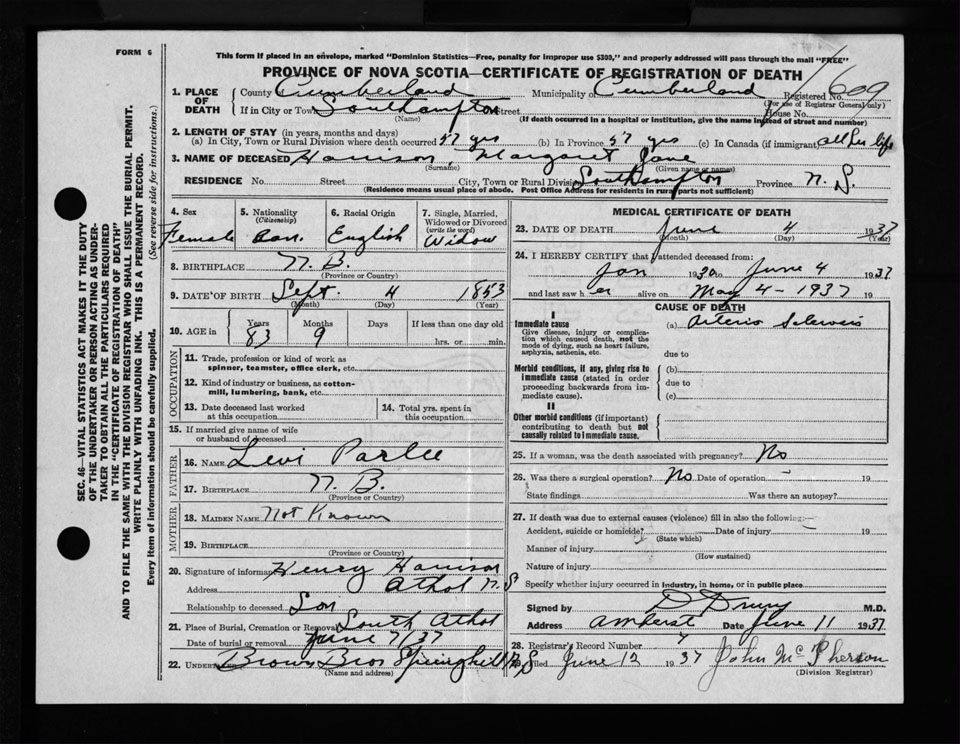 FORM 6
This form if placed in an envelope, marked "Dominion Statistics—Free, penalty for improper use $300," and properly addressed will pass through the mail "FREE"
PROVINCE OF NOVA SCOTIA—CERTIFICATE OF REGISTRATION OF DEATH
1. PLACE OF DEATH
County Cumberland Municipality of Cumberland Registered No. 609
(For use of Registrar General only)
If in City or Town Southampton Street House No.
(Name) (If death occurred in a hospital or institution, give the name instead of street and number)
2. LENGTH OF STAY (in years, months and days)
(a) In City, Town or Rural Division where death occurred 57 yrs (b) In Province 57 yrs (c) In Canada (if immigrant) all her life
3. NAME OF DECEASED Harrison, Margaret Jane
(Surname) (Given name or names)
RESIDENCE No. Street City, Town or Rural Division Southampton Province N. S.
(Residence means usual place of abode. Post Office Address for residents in rural parts not sufficient)
4. Sex
Female
5. Nationality
(Citizenship)
Can.
6. Racial Origin
English
7. Single, Married, Widowed or Divorced
(write the word)
Widow
8. BIRTHPLACE N. B.
(Province or Country)
9. DATE OF BIRTH Sept. 4 1853
(Month) (Day) (Year)
10. AGE in
Years Months Days If less than one day old
83 9 hrs. or min.
OCCUPATION
11. Trade, profession or kind of work as
spinner, teamster, office clerk, etc.
12. Kind of industry or business, as cotton-
mill, lumbering, bank, etc.
13. Date deceased last worked
at this occupation
14. Total yrs. spent in
this occupation.
15. If married give name of wife
or husband of deceased
FATHER
16. NAME Levi Parlee
17. BIRTHPLACE N. B.
(Province or Country)
MOTHER
18. MAIDEN NAME Not Known
19. BIRTHPLACE
(Province or Country)
20. Signature of informant Henry Harrison
Address Athol N S
Relationship to deceased Son
21. Place of Burial, Cremation or Removal South Athol
Date of burial or removal June 7/37
22. UNDERTAKER Brown Bros Springhill N S
(Name and address)
MEDICAL CERTIFICATE OF DEATH
23. DATE OF DEATH June 4 1937
(Month) (Day) (Year)
24. I HEREBY CERTIFY that I attended deceased from:
Jan 1930 to June 4 1937
and last saw her alive on May 4 - 1937 19
CAUSE OF DEATH
I
Immediate cause
Give disease, injury or complica-
tion which caused death, not the
mode of dying, such as heart failure,
asphyxia, asthenia, etc.
(a) Arterio Sclerosis
due to
Morbid conditions, if any, giving rise to
immediate cause (stated in order
proceeding backwards from im-
mediate cause).
(b)
due to
(c)
II
Other morbid conditions (if important)
contributing to death but not
causally related to immediate cause.
25. If a woman, was the death associated with pregnancy? No
26. Was there a surgical operation? No Date of operation 19
State findings Was there an autopsy?
27. If death was due to external causes (violence) fill in also the following:—
Accident, suicide or homicide? Date of injury 19
(State which)
Manner of injury
(How sustained)
Nature of injury
Specify whether injury occurred in industry, in home, or in public place
Signed by D Drury M.D.
Address Amherst Date June 11 1937
28. Registrar's Record Number 4
Filed June 12 1937 John McPherson
(Division Registrar)
SEC. 46—VITAL STATISTICS ACT MAKES IT THE DUTY
OF THE UNDERTAKER OR PERSON ACTING AS UNDER-
TAKER TO OBTAIN ALL THE PARTICULARS REQUIRED
IN THE "CERTIFICATE OF REGISTRATION OF DEATH"
AND TO FILE THE SAME WITH THE DIVISION REGISTRAR WHO SHALL ISSUE THE BURIAL PERMIT.
WRITE PLAINLY WITH UNFADING INK. THIS IS A PERMANENT RECORD.
Every item of information should be carefully supplied. (See reverse side for instructions.)